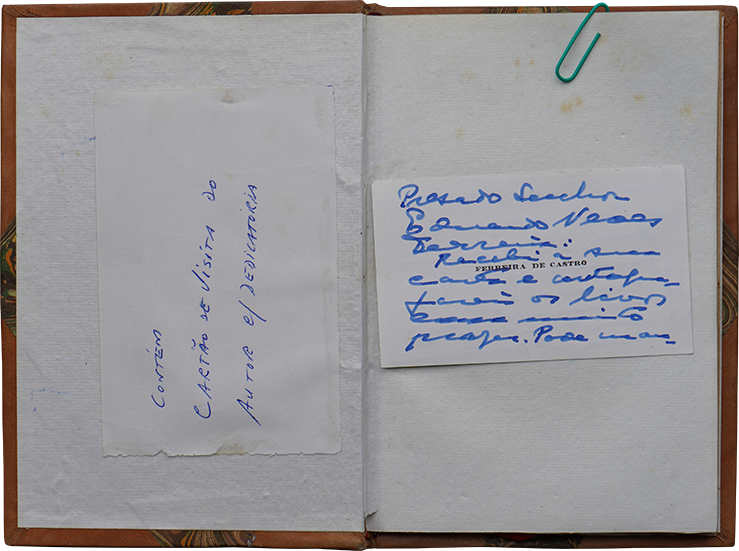 CONTÉM
CARTÃO DE VISITA DO
AUTOR C/ DEDICATÓRIA
Presado Senhor
Eduardo Neves
Ferreira:
Recebi a sua
FERREIRA DE CASTRO
carta e
os livros
com muito
prazer. Pode man-